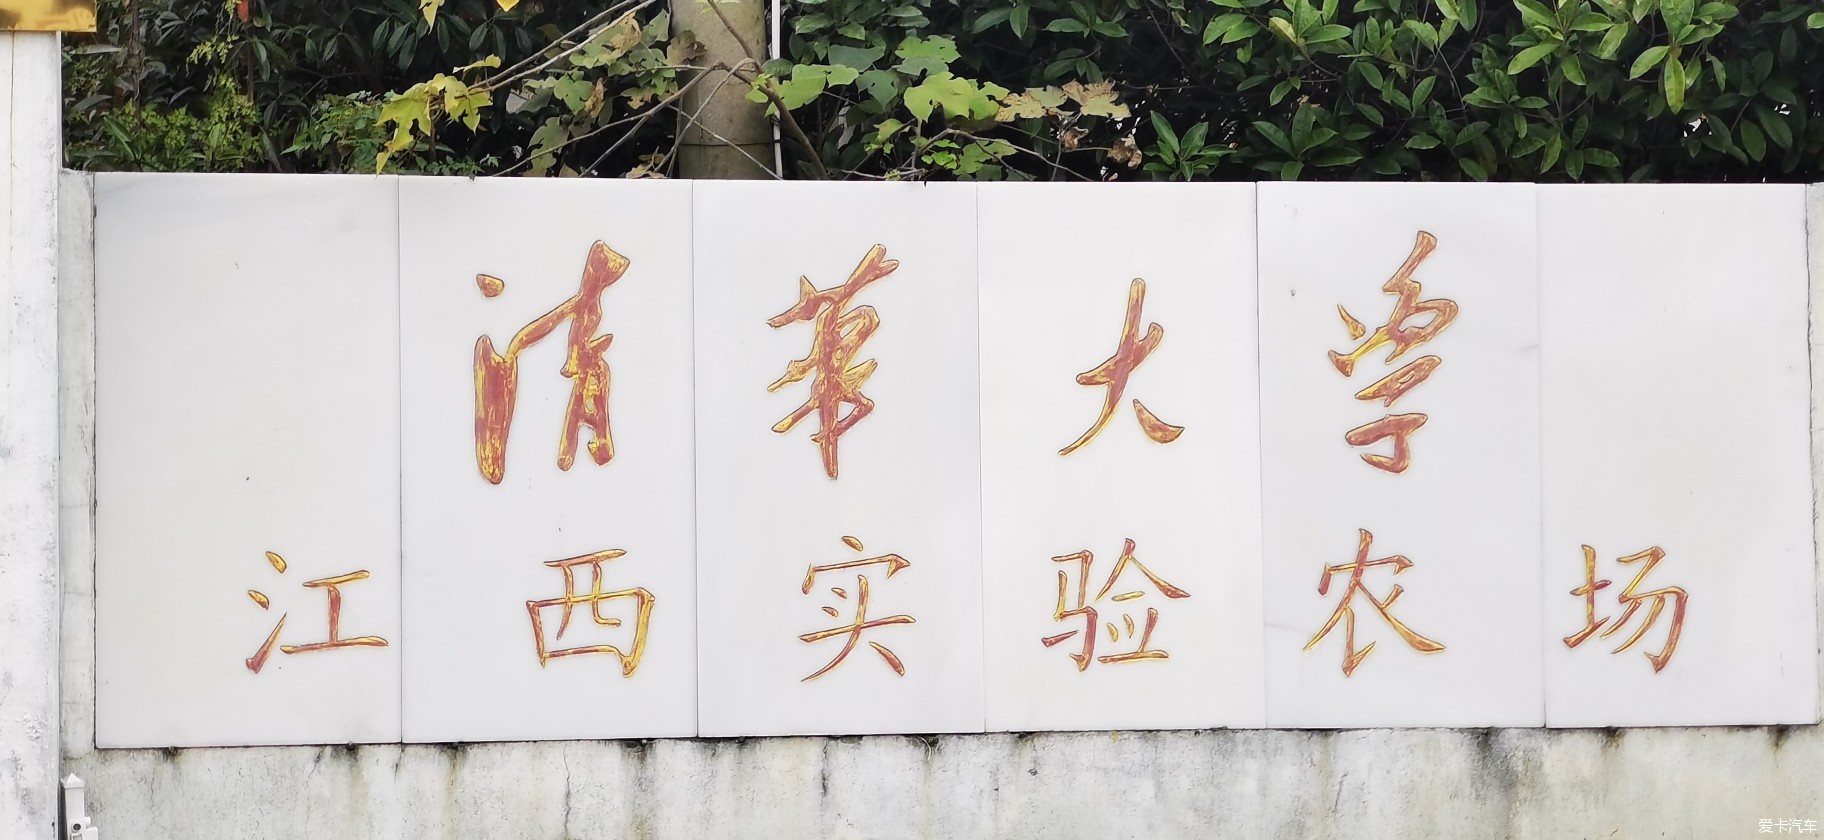 清华大学
江西实验农场
爱卡汽车